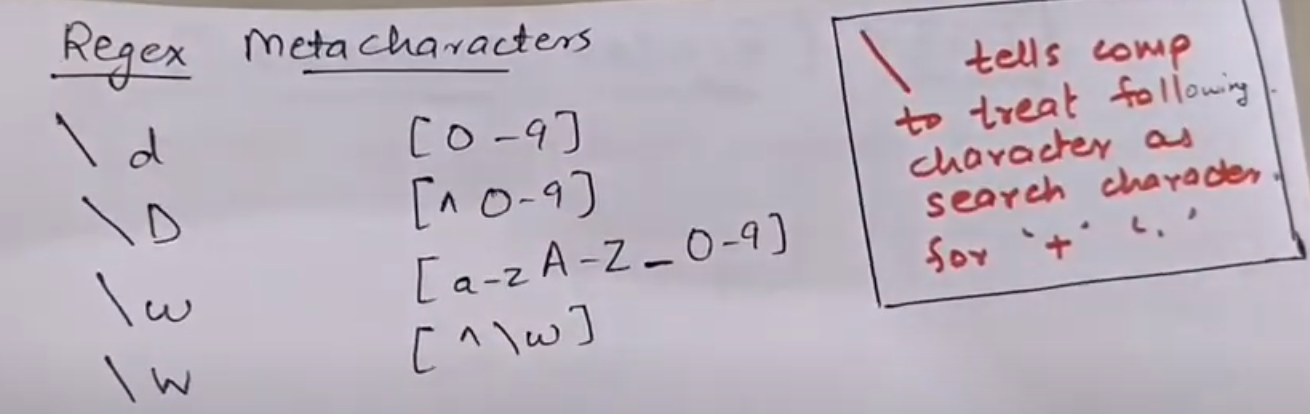 Regex Metacharacters
\d [0-9]
\D [^ 0-9]
\w [a-z A-Z_0-9]
\W [^\w]
\ tells comp
to treat following
character as
search character.
for '+' '.'